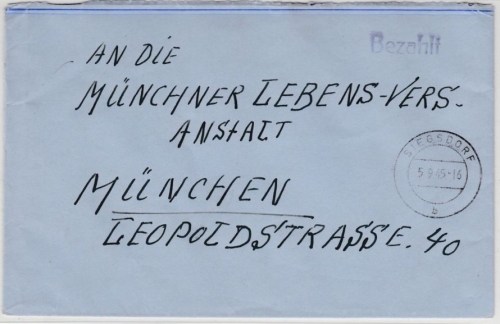 Bezahlt
AN DIE
MÜNCHNER LEBENS-VERS-
ANSTALT
SIEGSDORF
5.9.45-16
b
MÜNCHEN
LEOPOLDSTRASSE. 40